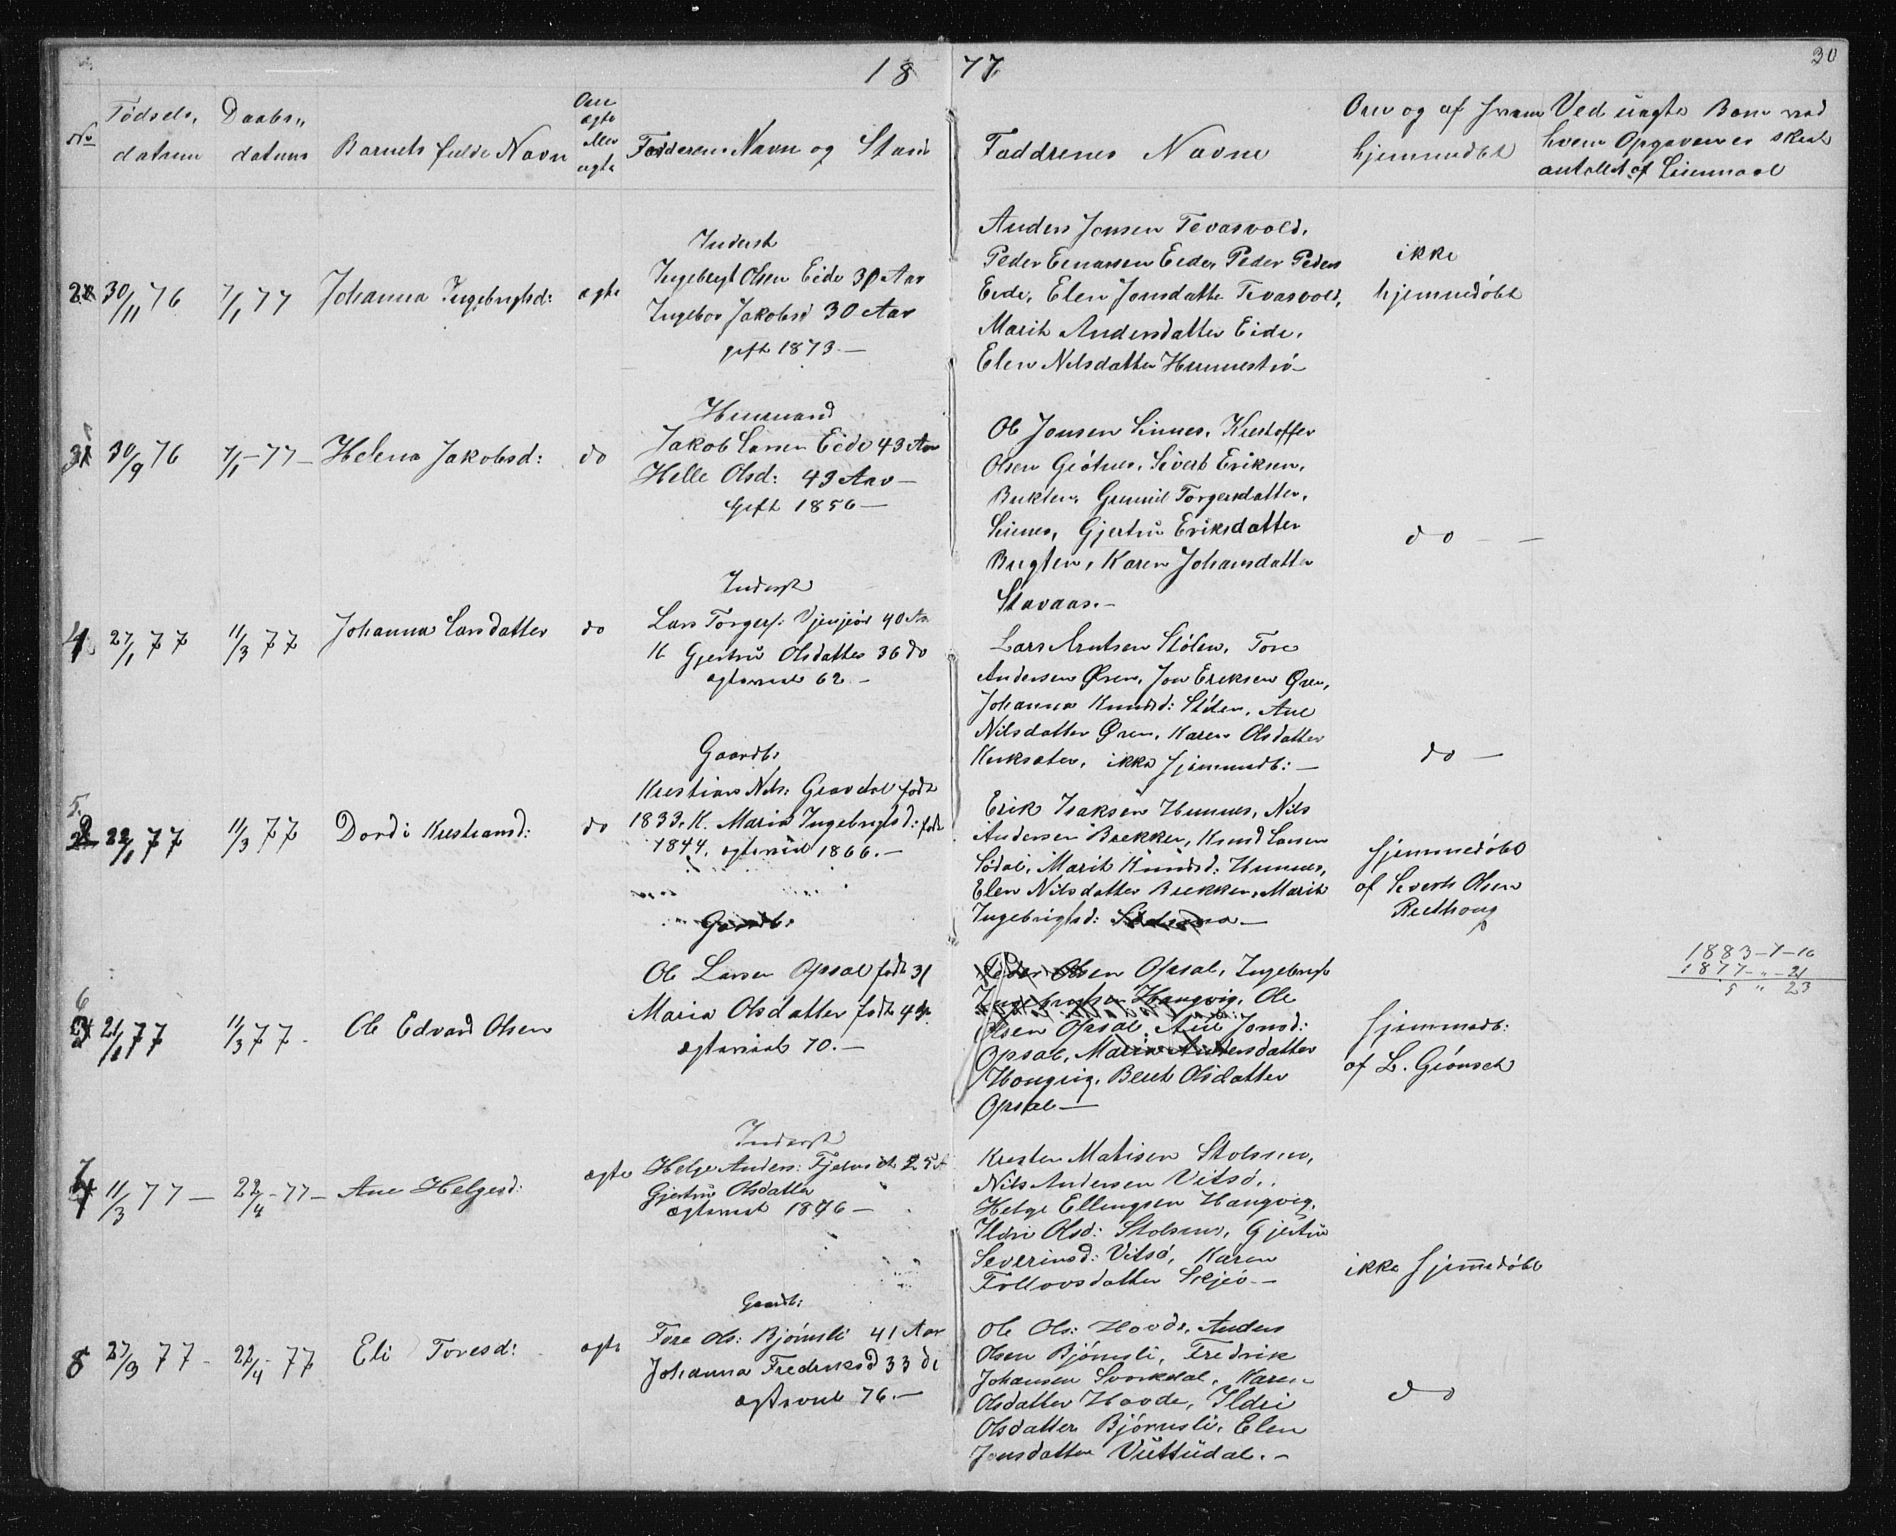 18 77
30
No
Fødsels,
datum
Daabs,,
datum
Barnets fulde Navn
Om
ægte
eller
uægte
Fadderens Navn og Stand
Faddrenes Navne
Om og af hvem
hjemmedøbt
Ved uægte Born ved
hvem Opgavernes skeet
antallet af Leiermaal
30/11 76 7/1 77 Johanna Ingebrigtsd: ægte
Inderst
Ingebrigt Olsen Eide 30 Aar
Ingebor Jakobsd 30 Aar
gift 1873.—
Anders Jonsen Tevasvold,
Peder Einarsen Eide, Peder Peders
Eide, Elen Jonsdatte Tevasvold,
Marit Andersdatter Eide,
Elen Nilsdatter Hennestrø—
ikke
hjemmedøbt
30/9 76 7/1—77— Helena Jakobsd: do
Huusmand
Jakob Larsen Eide 43 Aar
Helle Olsd: 43 Aar—
gift 1856—
Ole Jonsen Linnes, Kristoffer
Olsen Grötnes, Sivert Eriksen,
Bukten, Gunnil Torgersdatter,
Linnes, Gjertru Eriksdatter
Bugten, Karen Johansdatter
Stavaas.—
do — —
4 27/1 77 11/3 77 Johanna Larsdatter do
Inderst
Lars Torgers: 40 Aar
K Gjertru Olsdatter 36 do
ægteviet 62.—
Lars Knutsen Stølen, Tore
Andersen Øren, Jon Eriksen Øren,
Johanna Knudsd: Stølen, Ane
Nilsdatter Øren, Karen Olsdatter
ikke hjemmedb:—
do —
5.
22/1 77 11/3 77 Dordi Kristiansd: do
Gaardb:
Kristian Nils: Gravdal født
1833. K. Maria Ingebrigtsd: født
1844, ægteviet 1866.—
Erik Isaksen Hunnes, Nils
Andersen Brekken, Knud Larsen
Södal, Marit Knudsd: Hunnes,
Elen Nilsdatter Brekken, Marit
Ingebrigtsd:
hjemmedøbt
af Siverts Olsen
Reethoug
6
21/1 77 11/3 77. Ole Edvard Olsen
Gaardb:
Ole Larsen Opsal født 31
Maria Olsdatter født 43
ægteviet 70.—
Peder Olsen Opsal, Ingebrigt
Ingebrigtsen Hangvig, Ole
Olsen Opsal, Ane Jonsd:
Opsal, Maria Andersdatter
Hongvig, Berit Olsdatter
Opsal—
hjemmedb:
af L. Grönset
1883—7—16
1877—"—21
5 " 23
7
11/3 77— 22/4—77— Ane Helgesd: ægte
Inderst
Helge Anders: 25 A
Gjertru Olsdatter
ægteviet 1876—
Kresten Matisen Stolsnes,
Nils Andersen Vitsø,
Helge Ellingsen Hangvig,
Ildri Olsd: Stolsnes, Gjertru
Severinsd: Vitsø, Karen
Follovsdatter Skjeö—
ikke hjemmedøbt
8 27/3 77— 22/4—77 Eli Toresd: ægte
Gaardb:
Tore Ols: Bjørnsli 41 Aar
Johanna Fredriksd 33 do
ægteviet 76.—
Ole Ols: Hovde, Anders
Olsen Bjørnsli, Fredrik
Johansen Svorkdal, Karen
Olsdatter Hovde, Ildri
Olsdatter Bjørnsli, Elen
Jonsdatter Vuttudal.—
do